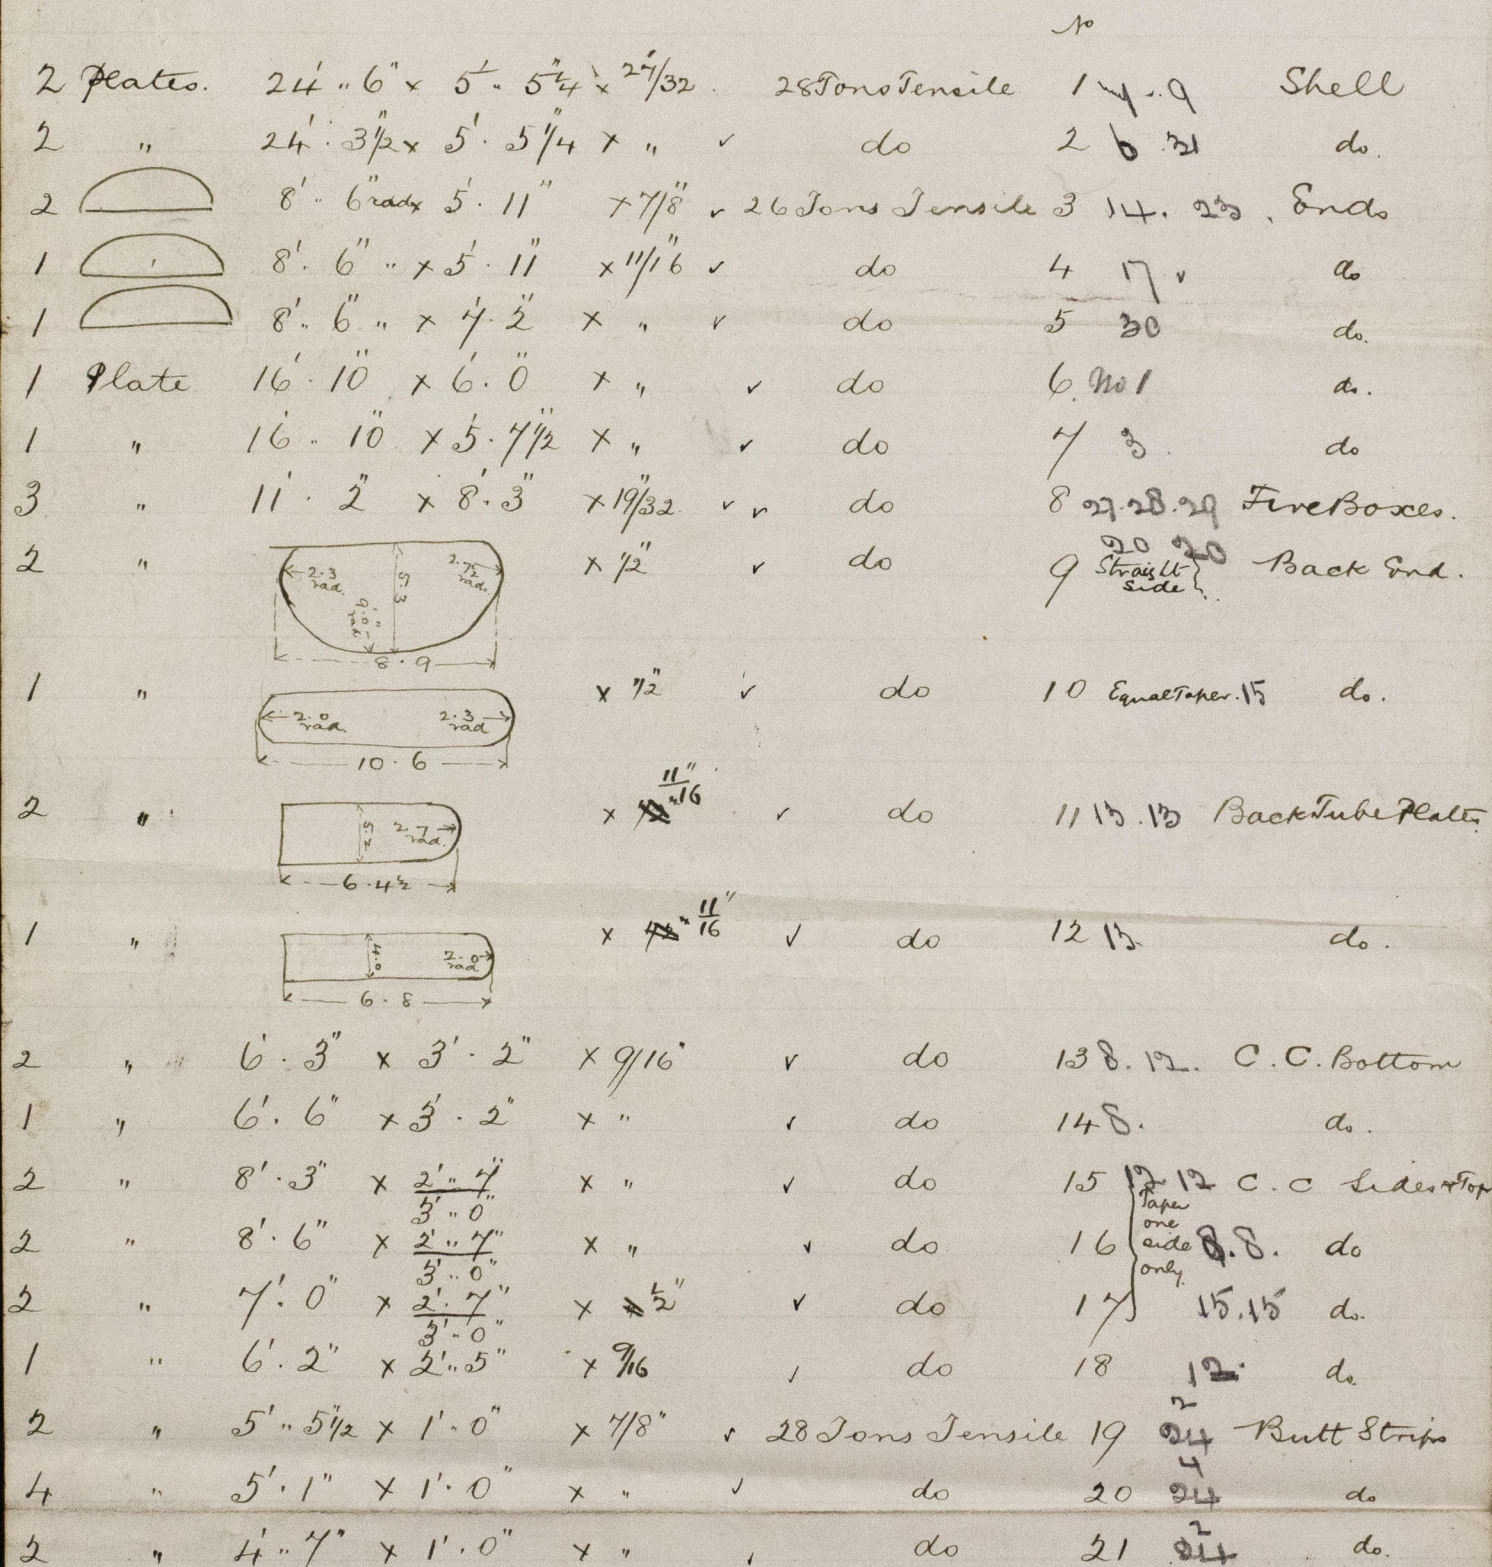 No
2 Plates. 24'..6" x 5'.. 5 1/4" x 27/32 . 28 Tons Tensile 1 7..9 Shell
2 " 24'. 3 1/2" x 5'. 5 1/4" x " ✓ do 2 6 . 31 do.
2 8'.. 6" rad x 5'. 11" x 7/8" ✓ 26 Tons Tensile 3 14. 23 . Ends
1 8'. 6" .. x 5'. 11" x 11/16" ✓ do 4 17 ✓ do
1 8'.. 6" .. x 7'. 2" x " ✓ do 5 30 do.
1 Plate 16'. 10" x 6'. 0" x " ✓ do 6. No 1 do.
1 " 16'.. 10" x 5'. 7 1/2" x " ✓ do 7 3. do
3 " 11'. 2" x 8'. 3" x 19/32" ✓ ✓ do 8 27.28.29 Fire Boxes.
2 " x 1/2" ✓ do 9 20 20 Straight side } Back End.
2.3 rad. 5.3 2.7 1/2 rad.
9'.0" rad
8.9
1 " x 1/2" ✓ do 10 Equal Taper. 15 do.
2.0 rad. 2.3 rad
10.6
2 " x 11/16" ✓ do 11 13.13 Back Tube Plates
2.7 rad.
6.4 1/2
1 " x 11/16" ✓ do 12 13. do.
4.0 2.0 rad
6.8
2 " 6'. 3" x 3'. 2" x 9/16" ✓ do 13 8. 12. C.C. Bottom
1 " 6'. 6" x 3'. 2" x " ✓ do 14 8. do.
2 " 8'. 3" x 2'.. 7" / 3'.. 0" x " ✓ do 15 12 12 C.C Sides & Top
2 " 8'. 6" x 2'.. 7" / 3'.. 0" x " ✓ do 16 } Taper one side only. 8.8. do
2 " 7'. 0" x 2'. 7" / 3'.. 0" x 1/2" ✓ do 17 15.15 do.
1 " 6'. 2" x 2'.. 5" x 9/16 ✓ do 18 12. do.
2 " 5'.. 5 1/2 x 1'. 0" x 7/8" ✓ 28 Tons Tensile 19 2 24 Butt Strips
4 " 5'. 1" x 1'. 0" x " ✓ do 20 4 24 do
2 " 4'.. 7" x 1'. 0" x " ✓ do 21 2 24 do.